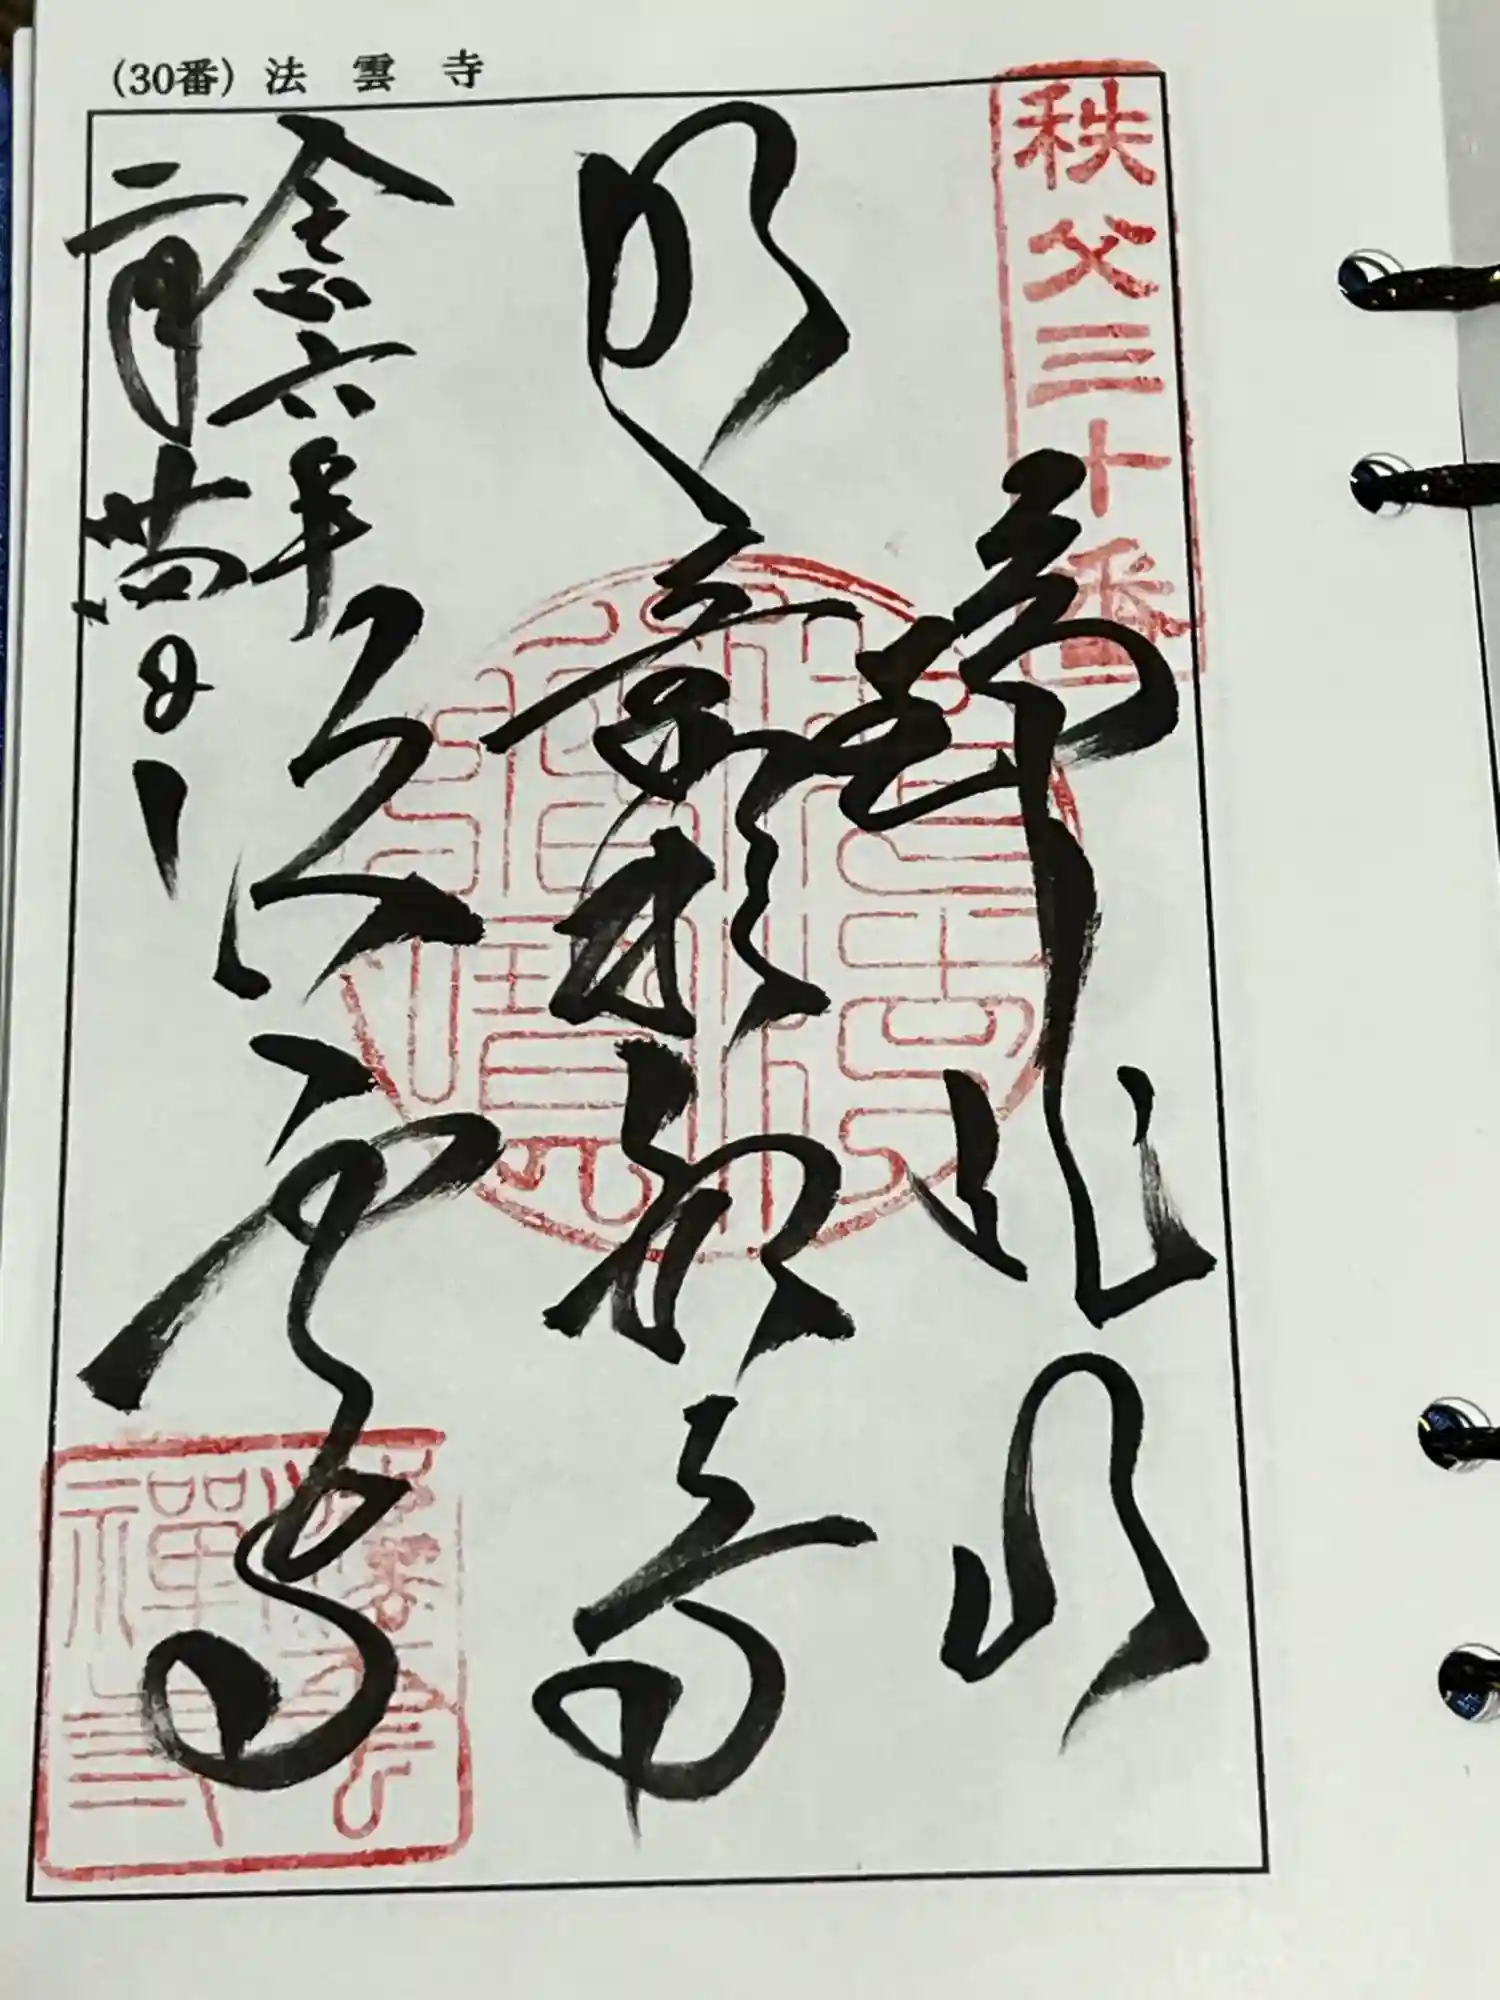 (30番) 法雲寺
秩父三十番
瑞龍山
如意輪観音
法雲寺
令和六年
二月廿四日
法雲禪寺